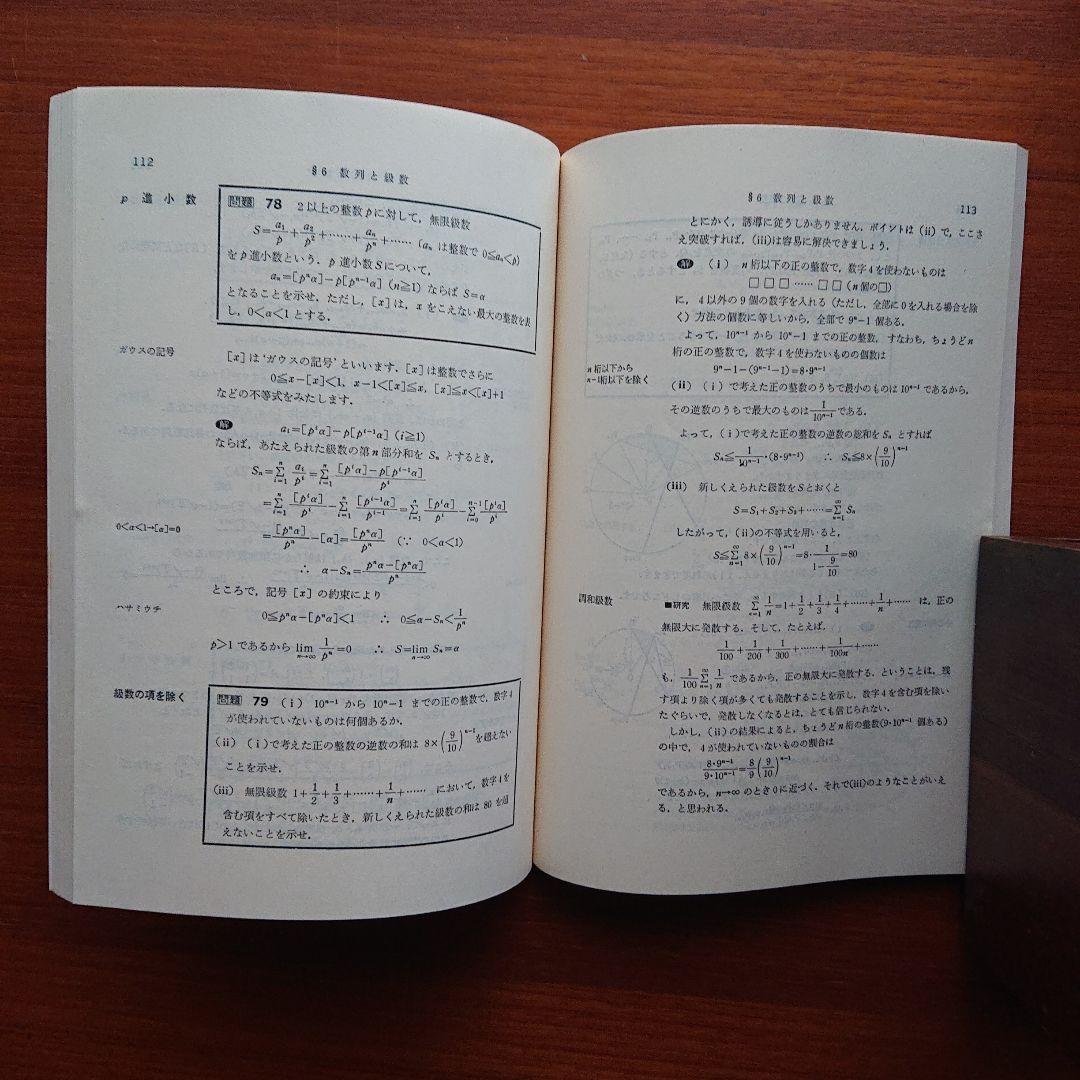 112
§6 数列と級数
p 進小数
問題 78 2以上の整数pに対して，無限級数
S=a₁/p+a₂/p²+……+aₙ/pⁿ+……（aₙ は整数で 0≦aₙ<p）
をp進小数という．p 進小数Sについて，
aₙ=[pⁿα]-p[pⁿ⁻¹α]（n≧1）ならば S=α
となることを示せ．ただし，[x]は，xをこえない最大の整数を表
し，0<α<1とする．
ガウスの記号
[x]は‘ガウスの記号’といいます．[x]は整数でさらに
0≦x-[x]<1，x-1<[x]≦x，[x]≦x<[x]+1
などの不等式をみたします．
解 aᵢ=[pⁱα]-p[pⁱ⁻¹α]（i≧1）
ならば，あたえられた級数の第n部分和を Sₙ とするとき，
Sₙ=Σᵢ₌₁ⁿ aᵢ/pⁱ=Σᵢ₌₁ⁿ ([pⁱα]-p[pⁱ⁻¹α])/pⁱ
=Σᵢ₌₁ⁿ [pⁱα]/pⁱ-Σᵢ₌₁ⁿ [pⁱ⁻¹α]/pⁱ⁻¹=Σᵢ₌₁ⁿ [pⁱα]/pⁱ-Σᵢ₌₀ⁿ⁻¹ [pⁱα]/pⁱ
0<α<1→[α]=0
=[pⁿα]/pⁿ-[α]=[pⁿα]/pⁿ （∵ 0<α<1）
∴ α-Sₙ=(pⁿα-[pⁿα])/pⁿ
ところで，記号[x]の約束により
ハサミウチ
0≦pⁿα-[pⁿα]<1 ∴ 0≦α-Sₙ<1/pⁿ
p>1であるから lim n→∞ 1/pⁿ=0 ∴ S=lim n→∞ Sₙ=α
級数の項を除く
問題 79 （i）10ⁿ⁻¹ から 10ⁿ-1 までの正の整数で，数字4
が使われていないものは何個あるか．
（ii）（i）で考えた正の整数の逆数の和は 8×(9/10)ⁿ⁻¹を超えない
ことを示せ．
（iii）無限級数 1+1/2+1/3+……+1/n+…… において，数字4を
含む項をすべて除いたとき，新しくえられた級数の和は 80 を超
えないことを示せ．
§6 数列と級数
113
とにかく，誘導に従うしかありません．ポイントは（ii）で，ここさ
え突破すれば，（iii）は容易に解決できましょう．
解 （i）n桁以下の正の整数で，数字4を使わないものは
□□□……□□（n個の□）
に，4以外の9個の数字を入れる（ただし，全部に0を入れる場合を除
く）方法の個数に等しいから，全部で 9ⁿ-1 個ある．
よって，10ⁿ⁻¹ から 10ⁿ-1 までの正の整数，すなわち，ちょうどn
桁の正の整数で，数字4を使わないものの個数は
n桁以下から
n-1桁以下を除く
9ⁿ-1-(9ⁿ⁻¹-1)=8·9ⁿ⁻¹
（ii）（i）で考えた正の整数のうちで最小のものは 10ⁿ⁻¹ であるから，
その逆数のうちで最大のものは1/10ⁿ⁻¹である．
よって，（i）で考えた正の整数の逆数の総和を Sₙ とすれば
Sₙ≦1/10ⁿ⁻¹·(8·9ⁿ⁻¹) ∴ Sₙ≦8×(9/10)ⁿ⁻¹
（iii） 新しくえられた級数をSとおくと
S=S₁+S₂+S₃+……=Σₙ₌₁^∞ Sₙ
したがって，（ii）の不等式を用いると，
S≦Σₙ₌₁^∞ 8×(9/10)ⁿ⁻¹=8·1/(1-9/10)=80
調和級数
■研究 無限級数 Σₙ₌₁^∞ 1/n=1+1/2+1/3+1/4+……+1/n+…… は，正の
無限大に発散する．そして，たとえば，
1/100+1/200+1/300+……+1/100n+……
も，1/100 Σₙ₌₁^∞ 1/n であるから，正の無限大に発散する．ということは，残
す項より除く項が多くても発散することを示し，数字4を含む項を除い
たぐらいで，発散しなくなるとは，とても信じられない．
しかし，（ii）の結果によると，ちょうどn桁の整数(9·10ⁿ⁻¹ 個ある)
の中で，4が使われていないものの割合は
8·9ⁿ⁻¹/9·10ⁿ⁻¹=8/9(9/10)ⁿ⁻¹
であるから，n→∞ のとき0に近づく．それで(iii)のようなことがいえ
る，と思われる．